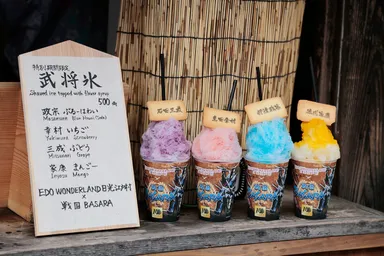 特別期間限定
武将氷
Shaved ice topped with flavor syrup
500円
政宗 ぶるーはわい
Masamune Blue Hawaii (Soda)
幸村 いちご
Yukimura Strawberry
三成 ぶどう
Mitsunari Grape
家康 まんごー
Ieyasu Mango
EDO WONDERLAND 日光江戸村
×
戦国 BASARA
石田三成
真田幸村
伊達政宗
徳川家康